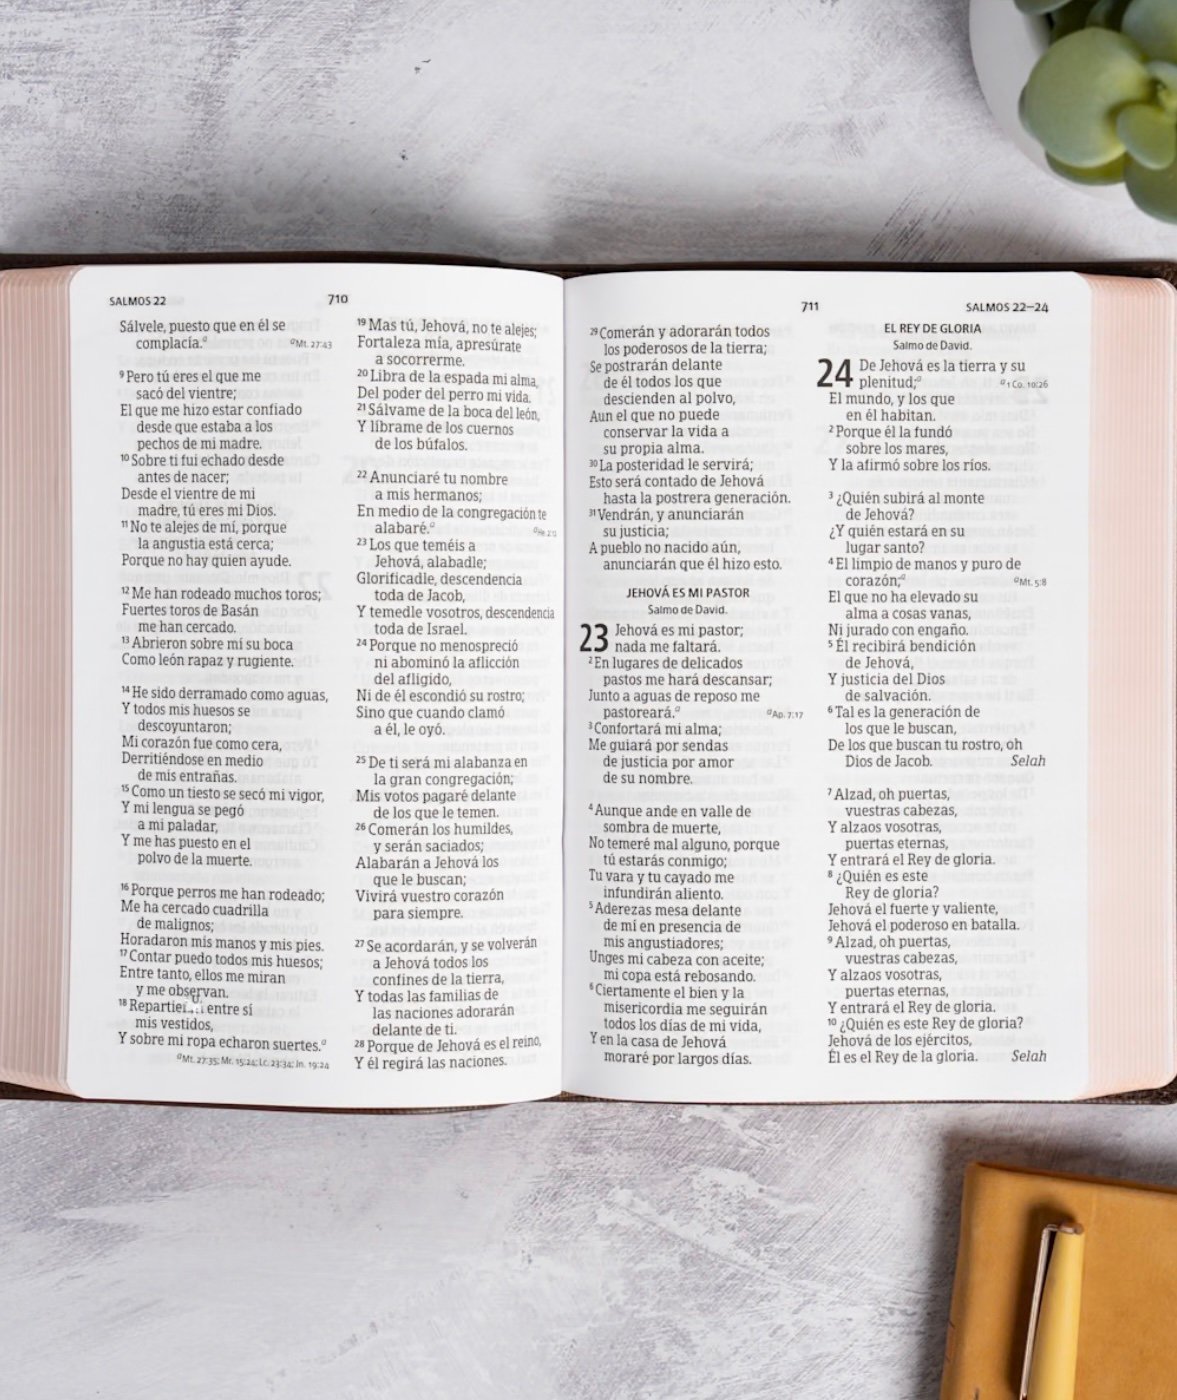 SALMOS 22
710
Sálvele, puesto que en él se
complacía.a
aMt. 27:43
9 Pero tú eres el que me
sacó del vientre;
El que me hizo estar confiado
desde que estaba a los
pechos de mi madre.
10 Sobre ti fui echado desde
antes de nacer;
Desde el vientre de mi
madre, tú eres mi Dios.
11 No te alejes de mí, porque
la angustia está cerca;
Porque no hay quien ayude.
12 Me han rodeado muchos toros;
Fuertes toros de Basán
me han cercado.
13 Abrieron sobre mí su boca
Como león rapaz y rugiente.
14 He sido derramado como aguas,
Y todos mis huesos se
descoyuntaron;
Mi corazón fue como cera,
Derritiéndose en medio
de mis entrañas.
15 Como un tiesto se secó mi vigor,
Y mi lengua se pegó
a mi paladar,
Y me has puesto en el
polvo de la muerte.
16 Porque perros me han rodeado;
Me ha cercado cuadrilla
de malignos;
Horadaron mis manos y mis pies.
17 Contar puedo todos mis huesos;
Entre tanto, ellos me miran
y me observan.
18 entre sí
mis vestidos,
Y sobre mi ropa echaron suertes.a
aMt. 27:35; Mr. 15:24; Lc. 23:34; Jn. 19:24
19 Mas tú, Jehová, no te alejes;
Fortaleza mía, apresúrate
a socorrerme.
20 Libra de la espada mi alma,
Del poder del perro mi vida.
21 Sálvame de la boca del león,
Y líbrame de los cuernos
de los búfalos.
22 Anunciaré tu nombre
a mis hermanos;
En medio de la congregación te
alabaré.a
aHe. 2:12
23 Los que teméis a
Jehová, alabadle;
Glorificadle, descendencia
toda de Jacob,
Y temedle vosotros, descendencia
toda de Israel.
24 Porque no menospreció
ni abominó la aflicción
del afligido,
Ni de él escondió su rostro;
Sino que cuando clamó
a él, le oyó.
25 De ti será mi alabanza en
la gran congregación;
Mis votos pagaré delante
de los que le temen.
26 Comerán los humildes,
y serán saciados;
Alabarán a Jehová los
que le buscan;
Vivirá vuestro corazón
para siempre.
27 Se acordarán, y se volverán
a Jehová todos los
confines de la tierra,
Y todas las familias de
las naciones adorarán
delante de ti.
28 Porque de Jehová es el reino,
Y él regirá las naciones.
711
SALMOS 22–24
29 Comerán y adorarán todos
los poderosos de la tierra;
Se postrarán delante
de él todos los que
descienden al polvo,
Aun el que no puede
conservar la vida a
su propia alma.
30 La posteridad le servirá;
Esto será contado de Jehová
hasta la postrera generación.
31 Vendrán, y anunciarán
su justicia;
A pueblo no nacido aún,
anunciarán que él hizo esto.
JEHOVÁ ES MI PASTOR
Salmo de David.
23 Jehová es mi pastor;
nada me faltará.
2 En lugares de delicados
pastos me hará descansar;
Junto a aguas de reposo me
pastoreará.a
aAp. 7:17
3 Confortará mi alma;
Me guiará por sendas
de justicia por amor
de su nombre.
4 Aunque ande en valle de
sombra de muerte,
No temeré mal alguno, porque
tú estarás conmigo;
Tu vara y tu cayado me
infundirán aliento.
5 Aderezas mesa delante
de mí en presencia de
mis angustiadores;
Unges mi cabeza con aceite;
mi copa está rebosando.
6 Ciertamente el bien y la
misericordia me seguirán
todos los días de mi vida,
Y en la casa de Jehová
moraré por largos días.
EL REY DE GLORIA
Salmo de David.
24 De Jehová es la tierra y su
plenitud;a
a1 Co. 10:26
El mundo, y los que
en él habitan.
2 Porque él la fundó
sobre los mares,
Y la afirmó sobre los ríos.
3 ¿Quién subirá al monte
de Jehová?
¿Y quién estará en su
lugar santo?
4 El limpio de manos y puro de
corazón;a
aMt. 5:8
El que no ha elevado su
alma a cosas vanas,
Ni jurado con engaño.
5 Él recibirá bendición
de Jehová,
Y justicia del Dios
de salvación.
6 Tal es la generación de
los que le buscan,
De los que buscan tu rostro, oh
Dios de Jacob. Selah
7 Alzad, oh puertas,
vuestras cabezas,
Y alzaos vosotras,
puertas eternas,
Y entrará el Rey de gloria.
8 ¿Quién es este
Rey de gloria?
Jehová el fuerte y valiente,
Jehová el poderoso en batalla.
9 Alzad, oh puertas,
vuestras cabezas,
Y alzaos vosotras,
puertas eternas,
Y entrará el Rey de gloria.
10 ¿Quién es este Rey de gloria?
Jehová de los ejércitos,
Él es el Rey de la gloria. Selah